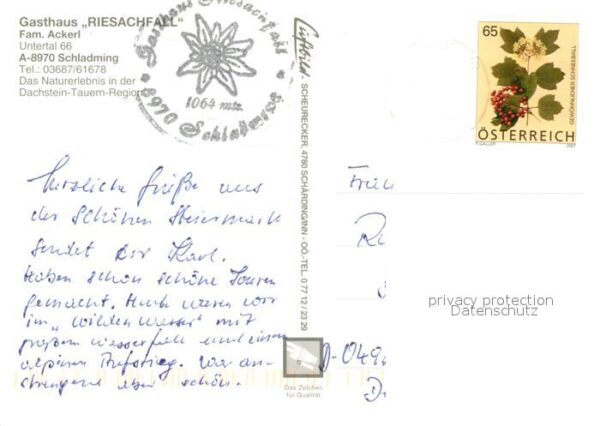 Gasthaus „RIESACHFALL"
Fam. Ackerl
Untertal 66
A-8970 Schladming
Tel.: 03687/61678
Das Naturerlebnis in der
Dachstein-Tauern-Region
Gasthaus Riesachfall
1064 m
8970 Schladming
Luftbild - SCHEURECKER, 4780 SCHÄRDING/INN - OÖ.-TEL. 0 77 12 / 23 29
65
GEWÖHNLICHER SCHNEEBALL
ÖSTERREICH
2007
Herzliche Grüße aus
der schönen Steiermark
sendet der Karl.
Haben schon schöne Touren
gemacht. Auch waren wir
im „wilden Wasser" mit
großem Wasserfall und einem
alpinen Aufstieg. War an-
strengend aber schön.
D-049
Das Zeichen
für Qualität
privacy protection
Datenschutz